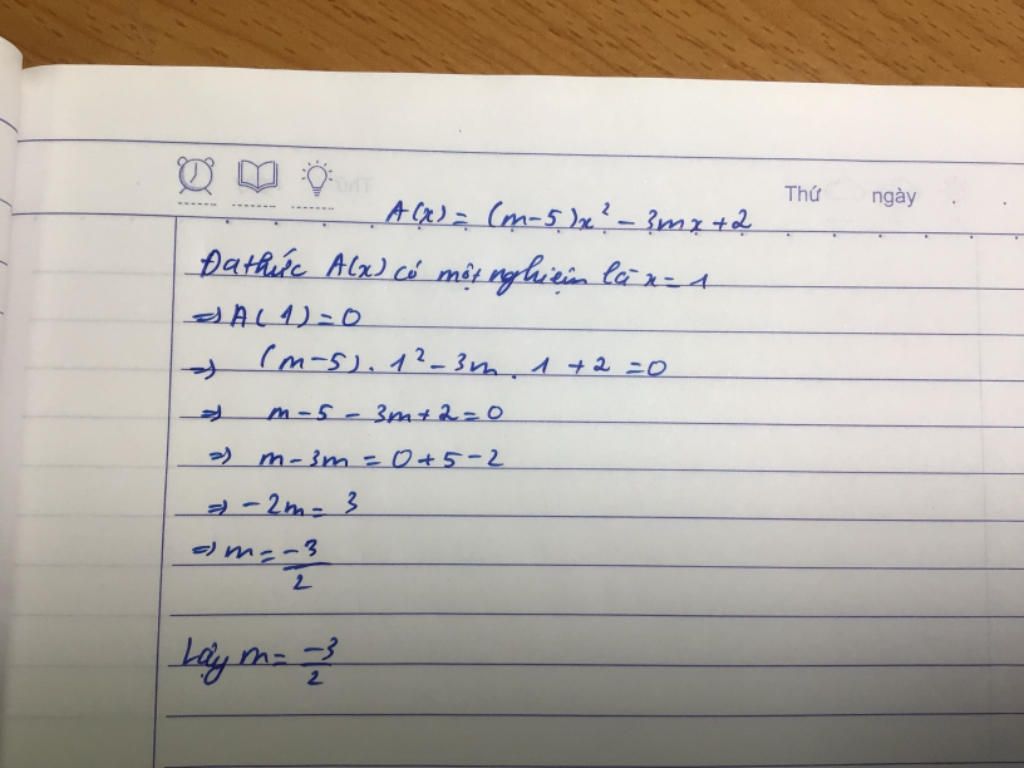 Thứ ngày
A(x) = (m-5)x² - 3mx + 2
Đa thức A(x) có một nghiệm là x = 1
⇒ A(1) = 0
⇒ (m-5). 1² - 3m . 1 + 2 = 0
⇒ m - 5 - 3m + 2 = 0
⇒ m - 3m = 0 + 5 - 2
⇒ -2m = 3
⇒ m = -3/2
Lậy m = -3/2